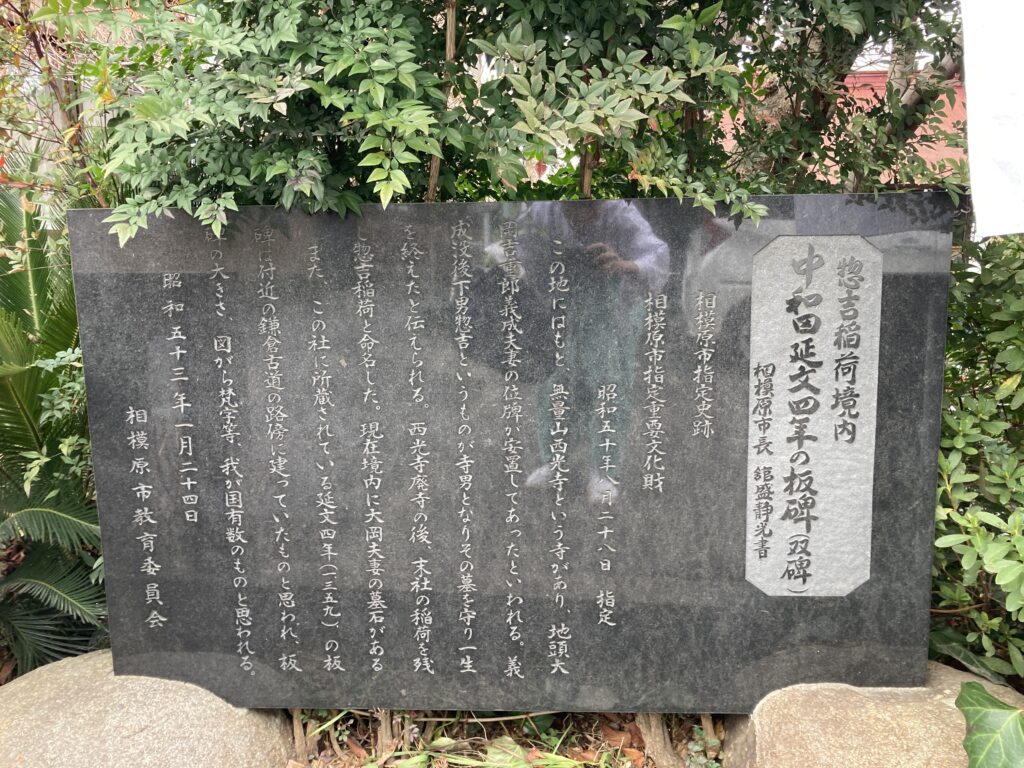 惣吉稲荷境内
中和田延文四年の板碑（双碑）
相模原市長 舘盛静光書
相模原市指定史跡
相模原市指定重要文化財
昭和五十年八月二十八日 指定
この地にはもと、無量山西光寺という寺があり、地頭大
岡吉重郎義成夫妻の位牌が安置してあったといわれる。義
成没後下男惣吉というものが寺男となりその墓を守り一生
を終えたと伝えられる。西光寺廃寺の後、末社の稲荷を残
し惣吉稲荷と命名した。現在境内に大岡夫妻の墓石がある
また、この社に所蔵されている延文四年（一三五九）の板
碑は付近の鎌倉古道の路傍に建っていたものと思われ、板
碑の大きさ、図がら梵字等、我が国有数のものと思われる。
昭和五十三年一月二十四日
相模原市教育委員会